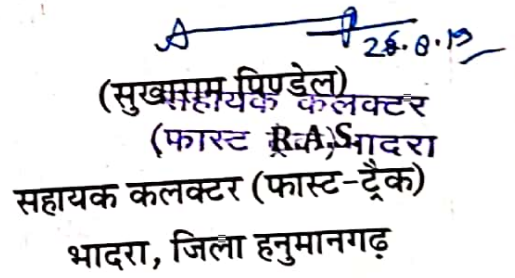 26.8.19
(सुखाराम पिण्डेल)
सहायक कलक्टर
(फास्ट ट्रैक) भादरा
R.A.S
सहायक कलक्टर (फास्ट-ट्रैक)
भादरा, जिला हनुमानगढ़